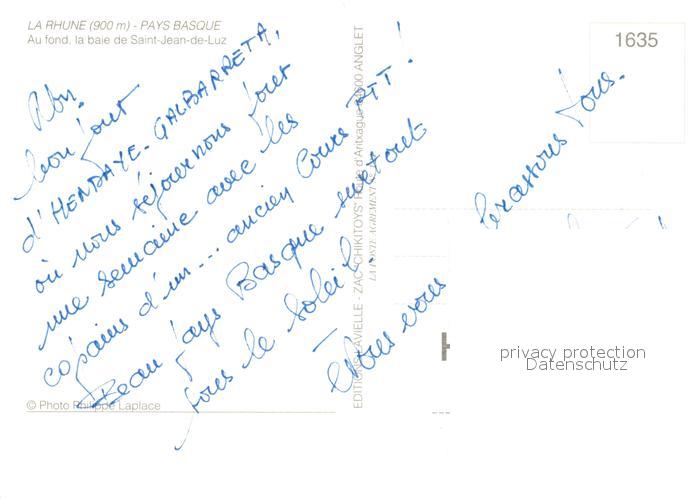 LA RHUNE (900 m) - PAYS BASQUE
Au fond, la baie de Saint-Jean-de-Luz
1635
bonjour
d'HENDAYE-GALBARRETA,
où nous séjournons pour
une semaine avec les
copains d'un... ancien Cours PTT!
Beau pays Basque surtout
sous le soleil.
vous
embrassons tous.
© Photo Philippe Laplace
EDITIONS LAVIELLE - ZAC "CHIKITOYS" d'Aritxague 64600 ANGLET
privacy protection
Datenschutz